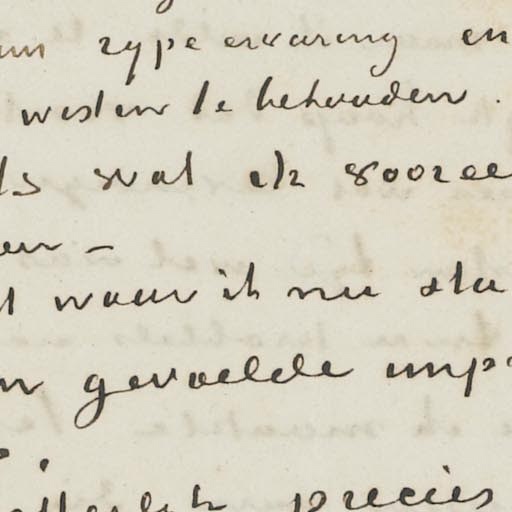 rype ervaring en
westen te behouden.
wat ik voor
waar ik nu sta
gevoelde imp
precies